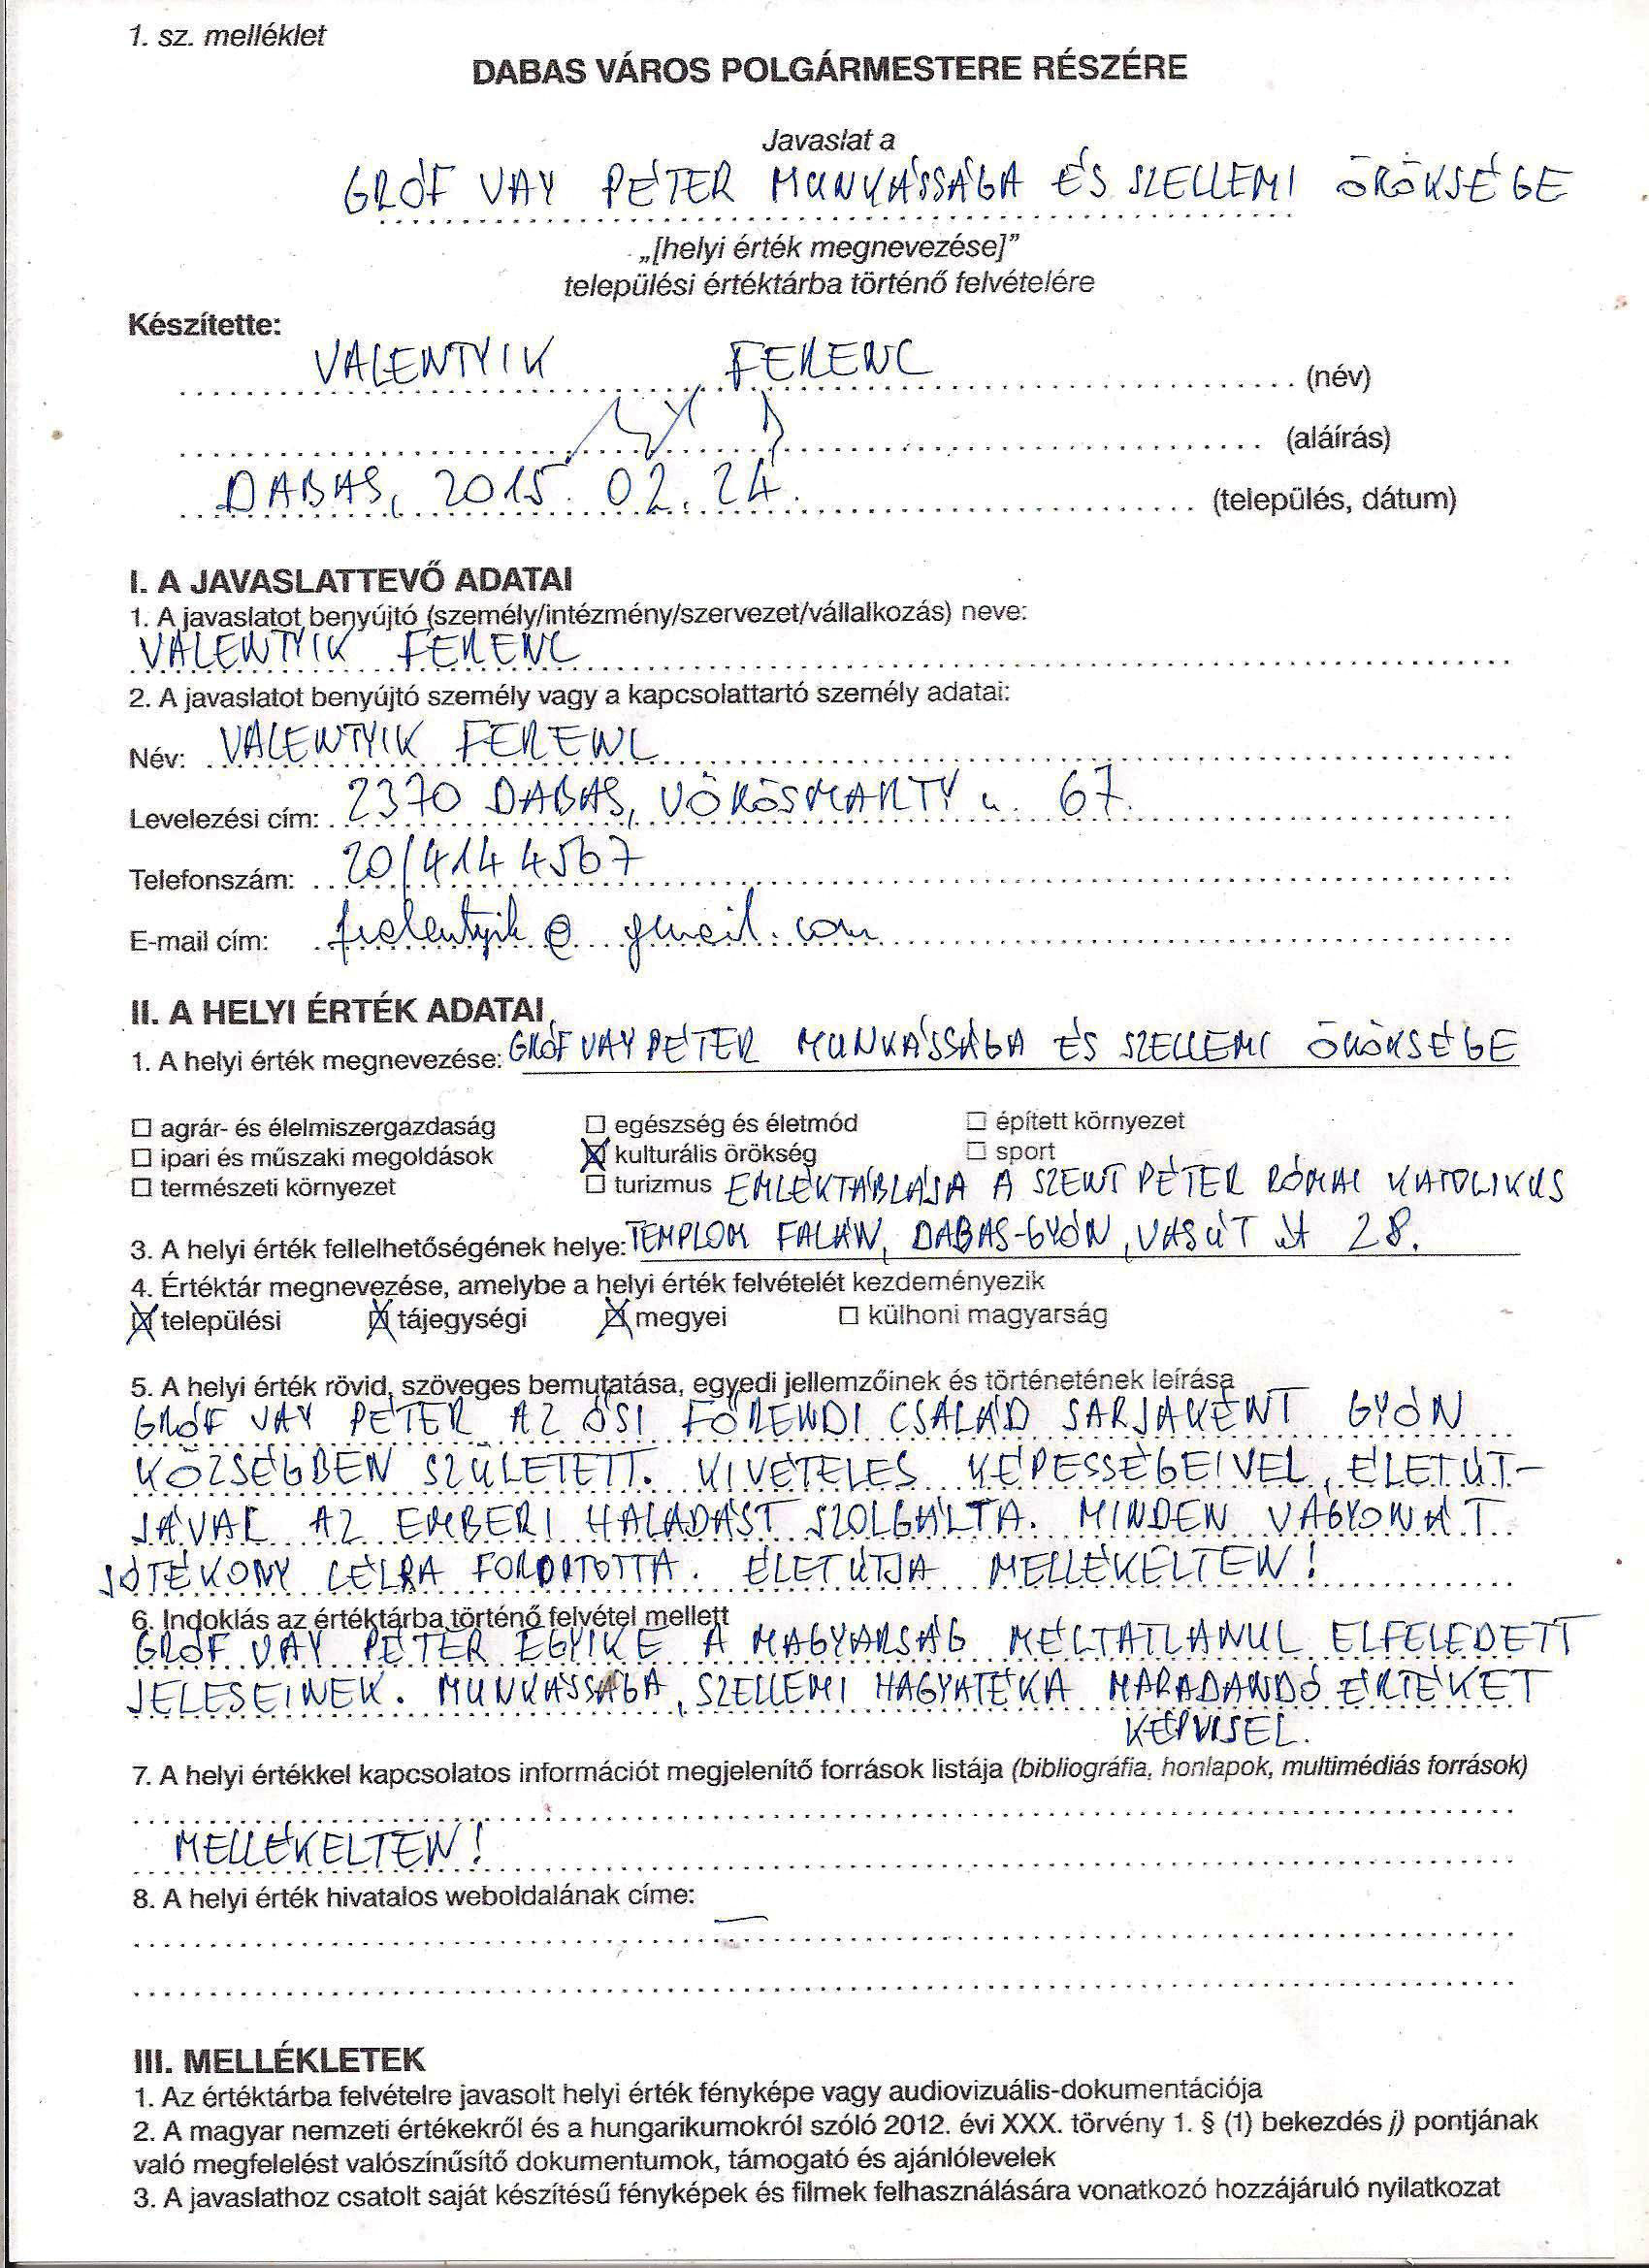 1. sz. melléklet
DABAS VÁROS POLGÁRMESTERE RÉSZÉRE
Javaslat a
GRÓF VAY PÉTER MUNKÁSSÁGA ÉS SZELLEMI ÖRÖKSÉGE
„[helyi érték megnevezése]”
települési értéktárba történő felvételére
Készítette:
VALENTYIK FERENC (név)
(aláírás)
DABAS, 2015. 02. 24. (település, dátum)
I. A JAVASLATTEVŐ ADATAI
1. A javaslatot benyújtó (személy/intézmény/szervezet/vállalkozás) neve:
VALENTYIK FERENC
2. A javaslatot benyújtó személy vagy a kapcsolattartó személy adatai:
Név: VALENTYIK FERENC
Levelezési cím: 2370 DABAS, VÖRÖSMARTY u. 67.
Telefonszám: 20/414 4567
E-mail cím: fvalentyik@gmail.com
II. A HELYI ÉRTÉK ADATAI
1. A helyi érték megnevezése: GRÓF VAY PÉTER MUNKÁSSÁGA ÉS SZELLEMI ÖRÖKSÉGE
☐ agrár- és élelmiszergazdaság ☐ egészség és életmód ☐ épített környezet
☐ ipari és műszaki megoldások ☒ kulturális örökség ☐ sport
☐ természeti környezet ☐ turizmus EMLÉKTÁBLÁJA A SZENT PÉTER RÓMAI KATOLIKUS
3. A helyi érték fellelhetőségének helye: TEMPLOM FALÁN, DABAS-GYÓN, VASÚT út 28.
4. Értéktár megnevezése, amelybe a helyi érték felvételét kezdeményezik
☒ települési ☒ tájegységi ☒ megyei ☐ külhoni magyarság
5. A helyi érték rövid, szöveges bemutatása, egyedi jellemzőinek és történetének leírása
GRÓF VAY PÉTER AZ ŐSI FŐRENDI CSALÁD SARJAKÉNT GYÓN
KÖZSÉGBEN SZÜLETETT. KIVÉTELES KÉPESSÉGEIVEL, ÉLETÚT-
JÁVAL AZ EMBERI HALADÁST SZOLGÁLTA. MINDEN VAGYONÁT
JÓTÉKONY CÉLRA FORDÍTOTTA. ÉLETÚTJA MELLÉKELTEN!
6. Indoklás az értéktárba történő felvétel mellett
GRÓF VAY PÉTER EGYIKE A MAGYARSÁG MÉLTATLANUL ELFELEDETT
JELESEINEK. MUNKÁSSÁGA, SZELLEMI HAGYATÉKA MARADANDÓ ÉRTÉKET
KÉPVISEL.
7. A helyi értékkel kapcsolatos információt megjelenítő források listája (bibliográfia, honlapok, multimédiás források)
MELLÉKELTEN!
8. A helyi érték hivatalos weboldalának címe:
—
III. MELLÉKLETEK
1. Az értéktárba felvételre javasolt helyi érték fényképe vagy audiovizuális-dokumentációja
2. A magyar nemzeti értékekről és a hungarikumokról szóló 2012. évi XXX. törvény 1. § (1) bekezdés j) pontjának
való megfelelést valószínűsítő dokumentumok, támogató és ajánlólevelek
3. A javaslathoz csatolt saját készítésű fényképek és filmek felhasználására vonatkozó hozzájáruló nyilatkozat